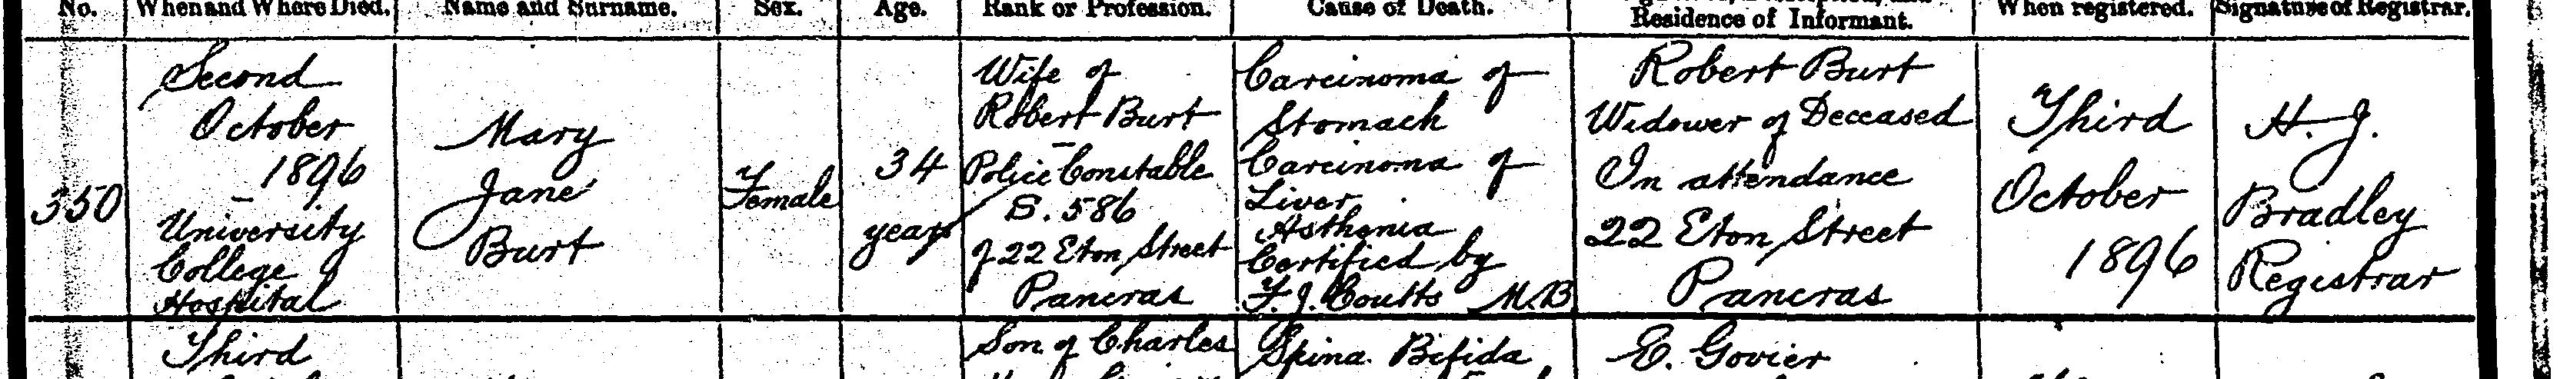 No.
When and Where Died.
Name and Surname.
Sex.
Age.
Rank or Profession.
Cause of Death.
Residence of Informant.
When registered.
Signature of Registrar.
350
Second
October
1896
University
College
Hospital
Mary
Jane
Burt
Female
34
years
Wife of
Robert Burt
Police Constable
S. 586
of 22 Eton Street
Pancras
Carcinoma of
Stomach
Carcinoma of
Liver
Asthenia
Certified by
F. J. Coutts M.B
Robert Burt
Widower of Deceased
In attendance
22 Eton Street
Pancras
Third
October
1896
H. J.
Bradley
Registrar
Third
Son of Charles
Spina Bifida
E. Govier